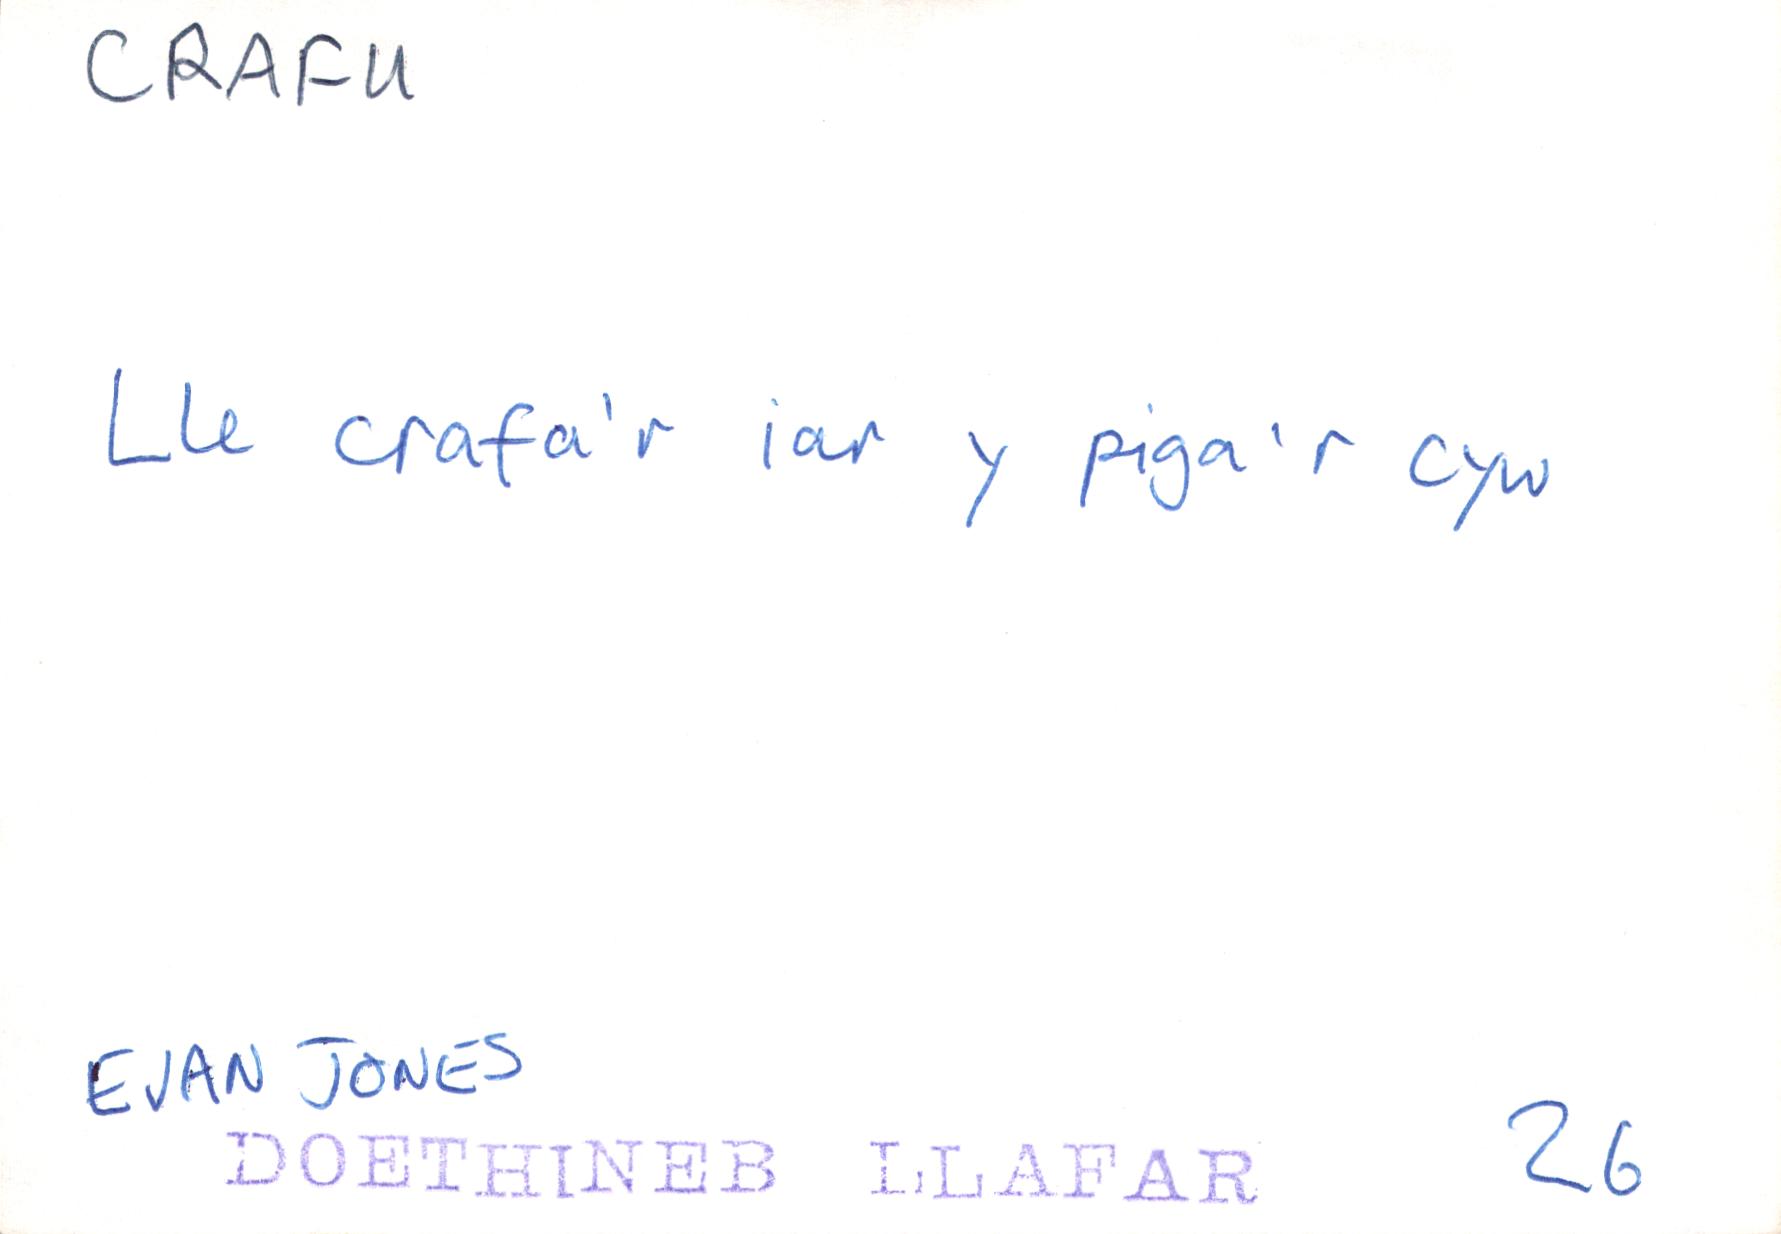 CRAFU
Lle crafa'r iar y piga'r cyw
EVAN JONES
DOETHINEB LLAFAR 26